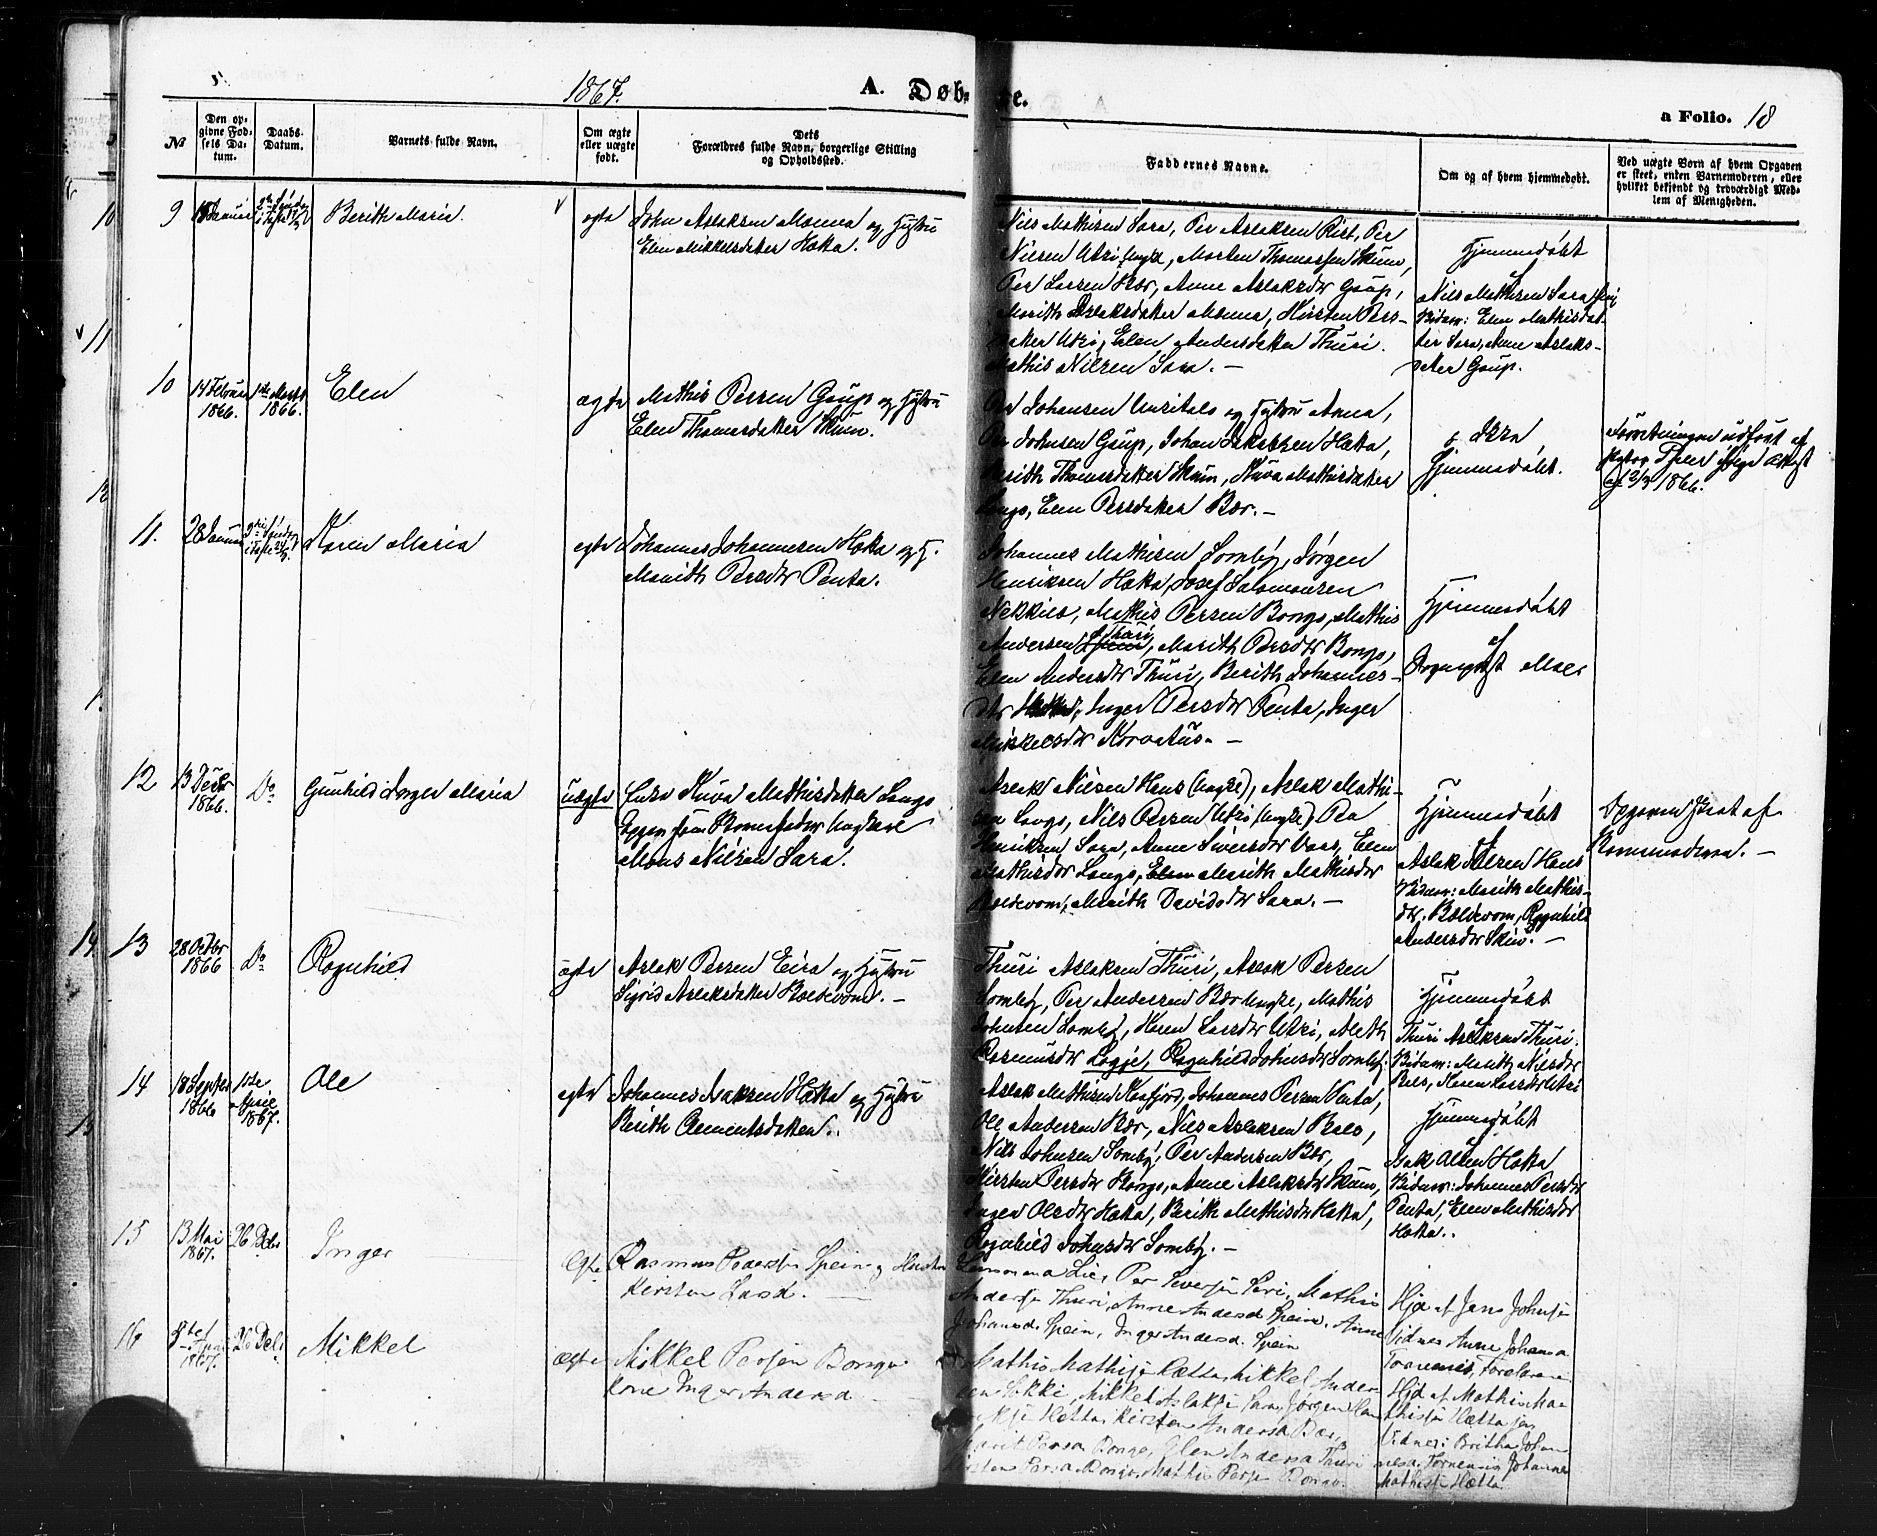 1867.
A. Døb-
te.
a Folio. 18
№
Den op-
givne Fød-
sels Da-
tum.
Daabs-
Datum.
Varnets fulde Navn.
Om ægte
eller uægte
født.
Dets
Forældres fulde Navn, borgerlige Stilling
og Opholdssted.
Faddernes Navne.
Om og af hvem hjemmedøbt.
Ved uægte Børn af hvem Opgaven
er skeet, enten Barnemoderen, eller
hvilket bekjendt og troværdigt Med-
lem af Menigheden.
9
Berith Maria.
ægte
John Aslaksen Manna og Hustru
Elen Mikkelsdatter Hætta.
Nils Mathisen Sara, Per Aslaksen Rist, Per
Nilsen Utsi (Yngre), Morten Thomassen Skum,
Per Larsen Bær, Anne Aslaksdr Gaup,
Marith Aslaksdatter Manna, Kirsten Pers-
datter Utsi, Elen Andersdatter Thuri.
Mathis Nilsen Sara. —
Hjemmedøbt
af
Nils Mathisen Sara
Vidner: Elen Mathisdat-
ter Sara, Anne Aslaks-
datter Gaup.
10
14 Februar
1866.
1ste Marts
1866.
Elen
ægte
Mathis Persen Gaup og Hustru
Elen Thomasdatter Skum.
Per Johansen Unsitalo og Hustru Anna,
Per Johnsen Gaup, Johan Isaksen Hætta,
Berith Thomasdatter Skum, Kuva Mathisdatter
Longo, Elen Persdatter Bær. —
Ikke
Hjemmedøbt.
Forretningen udført af
Pastor
af 12/3 1866.
11.
28 Januar
Karen Maria
ægte
Johannes Johannesen Hætta og H.
Marith Persdr Penta.
Johannes Mathisen Somby, Jørgen
Henriksen Hætta, Josef Salamonsen
Nikkus, Mathis Persen Bongo, Mathis
Andersen Thuri, Marith Persdr Bongo,
Elen Andersdr Thuri, Berith Johannes-
dtr Hætta, Inger Persdr Penta, Inger
Mikkelsdr Korvatus. —
Hjemmedøbt
af
Sognepræst Moe
12
13 Decbr
1866.
Do
Gunhild Inger Maria
uægte
Enke Kuva Mathisdatter Longo
Mons Nilsen Sara.
Aslak Nilsen Hans (Yngre), Aslak Mathi-
sen Longo, Nils Persen Utsi (Yngre), Per
Henriksen Sara, Anne Siversdr Vars, Elen
Mathisdr Longo, Elen Marith Mathisdr
Bældevom, Marith Davidsdr Sara. —
Hjemmedøbt
af
Aslak Nilsen Hans
Vidner: Marith Mathis-
dtr. Bældevom, Ragnhild
Andersdr Skum. —
Opgaven skeet af
Barnemoderen. —
13
28 Octbr
1866
Do
Ragnhild
ægte
Aslak Persen Eira og Hustru
Sigrid Aslaksdatter Bældevom. —
Thuri Aslaksen Thuri, Aslak Persen
Somby, Per Andersen Bær Yngre, Mathis
Johnsen Somby, Karen Larsdr Utsi, Aleth
Rasmusdr Logje, Ragnhild Johnsdr Somby.
Hjemmedøbt
af
Thuri Aslaksen Thuri.
Vidner: Marith Nilsdr
Bals, Karen Larsdr Utsi
14
18 Septbr
1866
1ste
April
1867.
Ole
ægte
Johannes Isaksen Hætta og Hustru
Berith Clementsdatter.
Aslak Mathisen Kaafjord, Johannes Persen Penta,
Ole Andersen Bær, Nils Aslaksen Bals,
Nils Johnsen Somby, Per Andersen Bær,
Kirsten Persdr Bongo, Anne Aslaksdr Skum,
Inger Olsdr Hætta, Berith Mathisdr Hætta,
Ragnhild Johnsdr Somby. —
Hjemmedøbt
af
Isak Olsen Hætta
Vidner: Johannes Persdr
Penta, Elen Mathisdr
Hætta.
15
13 Mai
1867.
26 Dcbr
Inger
ægte
Rasmus Pedersen Spein og Hustru
Kirsten Larsd. —
Per Seversen Siri, Mathis
Andersen Thuri, Anne Andersd Spein, Anne
Johannsd. Spein, Inger Andersd. Spein
Hjd af Jens Johnsen
Vidner Anne Johansa
Tornensis, Forældrene
16
April
1867.
26 Dcbr
Mikkel
ægte
Mikkel Persen Bongo
Kone Inger Andersd —
Mathis Mathisen Hætta, Mikkel Ander-
sen Sokki, Mikkel Aslaksen Sara, Jørgen Han-
riksen Hætta, Kirsten Andersa Bær,
Marit Persa Bongo, Elen Andersa Thuri
Kirsten Persa Bongo, Mathis Persen Bongo.
Hjd af Mathis Ma-
thisen Hætta sen
Vidner: Britha Johan
nesa Tornensis, Johannes
Mathisen Hætta